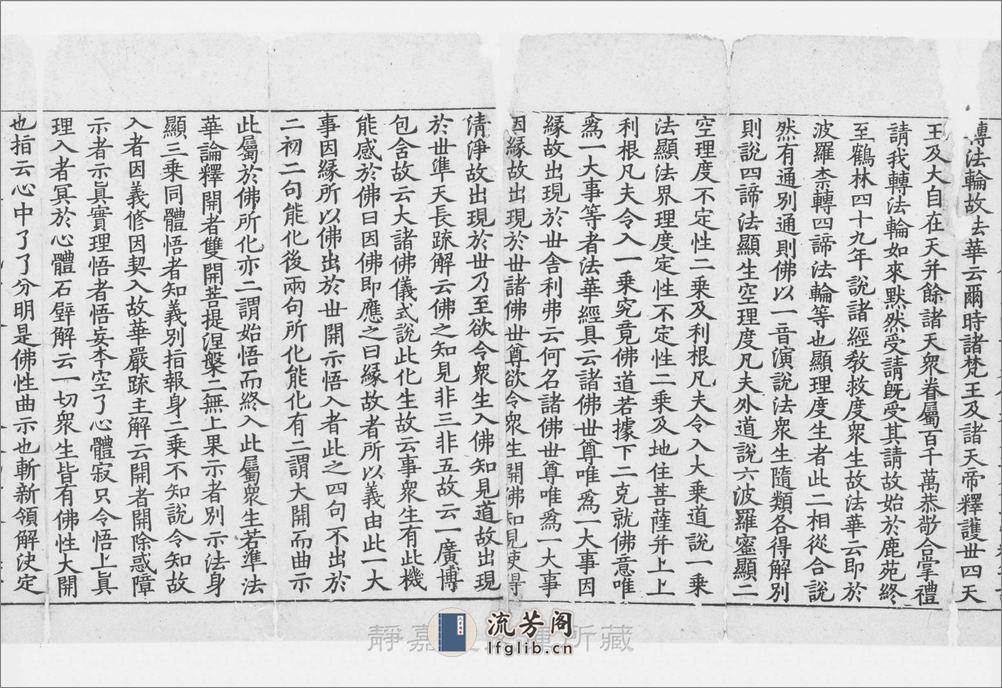 轉法輪故法華云爾時諸梵王及諸天帝釋護世四天
王及大自在天并餘諸天衆眷屬百千萬恭敬合掌禮
請我轉法輪如來默然受請旣受其請故始於鹿苑終
至鶴林四十九年說諸經教救度衆生故法華云即於
波羅柰轉四諦法輪等也顯理度生者此二相從合說
然有通別通則佛以一音演說法衆生隨類各得解別
則說四諦法顯生空理度凡夫外道說六波羅蜜顯二
空理度不定性二乗及利根凡夫令入大乗道說一乗
法顯法界理度定性不定性二乗及地住菩薩并上上
利根凡夫令入一乗究竟佛道若據下二克就佛意唯
爲一大事等者法華經具云諸佛世尊唯爲一大事因
緣故出現於世舍利弗云何名諸佛世尊唯爲一大事
因緣故出現於世諸佛世尊欲令衆生開佛知見使得
清淨故出現於世乃至欲令衆生入佛知見道故出現
於世準天長踈解云佛之知見非三非五故云一廣博
包含故云大諸佛儀式說此化生故云事衆生有此機
能感於佛曰因佛即應之曰緣故者所以義由此一大
事因緣所以佛出於世開示悟入者此之四句不出於
二初二句能化後兩句所化能化有二謂大開而曲示
此屬於佛所化亦二謂始悟而終入此屬衆生若準法
華論釋開者雙開菩提涅槃二無上果示者別示法身
顯三乗同體悟者知義別指報身二乗不知說令知故
入者因義修因契入故華嚴踈主解云開者開除惑障
示者示眞實理悟者悟妄夲空了心體寂只令悟上眞
理入者冥於心體石壁解云一切衆生皆有佛性大開
也指云心中了了分明是佛性曲示也斬新領解決定
靜嘉 所藏
流芳阁
lfglib.cn